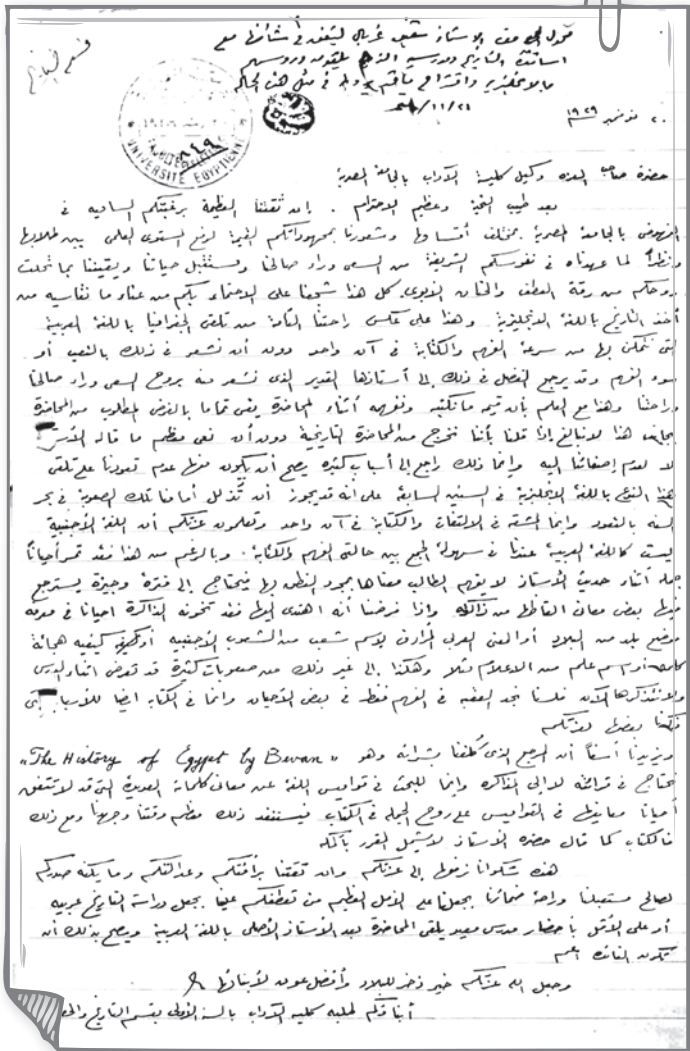 قسم التاريخ
محول إلى حضرة الأستاذ شفيق غربال للنظر في شأنها مع
أساتذة التاريخ ومدرسيه الذين يلقون دروسهم
بالإنجليزية واقتراح ما في مثل هذه الحالة
٢١/١١/
UNIVERSITE EGYPTIENNE
٨٤٩
٢٠ نوفمبر ١٩٢٩
حضرة صاحب العزة وكيل كلية الآداب بالجامعة المصرية
بعد طيب التحية وعظيم الاحترام . إن ثقتنا العظيمة برغبتكم السامية في
النهوض بالجامعة المصرية بمختلف أقسامها وشعورنا بمجهوداتكم القيمة لرفع المستوى العلمي بين طلابها
ونظراً لما عهدناه في نفوسكم الشريفة من السعي وراء صالحنا ومستقبل حياتنا ويقيننا بما تحلت
روحكم من رقة العطف والحنان الأبوي. كل هذا شجعنا على الاحتماء بكم من عناء ما نقاسيه من
أخذ التاريخ باللغة الإنجليزية وهذا على عكس راحتنا التامة من تلقي الجغرافيا باللغة العربية
التي نتمكن بها من سرعة الفهم والكتابة في آن واحد دون أن نشعر في ذلك بالتعب أو
سوء الفهم وقد يرجع الفضل في ذلك إلى أستاذها القدير الذي نشعر منه بروح السعي وراء صالحنا
وراحتنا وهذا مع العلم بأن قيمة ما نكتبه ونفهمه أثناء المحاضرة يفي تماما بالغرض المطلوب من المحاضرة
بجانب هذا لا نبالغ إذا قلنا بأننا نخرج من المحاضرة التاريخية دون أن نعي معظم ما قاله الأستاذ
لا لعدم إصغائنا إليه وإنما ذلك راجع إلى أسباب كثيرة يصح أن يكون منها عدم تعودنا على تلقي
هذا النوع باللغة الإنجليزية في السنين السابقة على أنه قد يجوز أن تذلل أمامنا تلك الصعوبة في بحر
السنة بالتعود وإنما المشقة في الالتفات والكتابة في آن واحد وتعلمون عزتكم أن اللغة الأجنبية
ليست كاللغة العربية عندنا في سهولة الجمع بين حالتي الفهم والكتابة. وبالرغم من هذا فقد تمر أحياناً
جملة أثناء حديث الأستاذ لا يفهم الطالب معناها بمجرد النطق بها فيحتاج إلى فترة وجيزة يسترجع
فيها بعض معاني ألفاظها من ذاكرته وإذا فرضنا أنه اهتدى إليها فقد تخونه الذاكرة أحيانا في معرفة
موضع بلد من البلاد أو المعنى العربي المرادف لاسم شعب من الشعوب الأجنبية أو كيفية هجائة
كلمة أو اسم علم من الأعلام مثلا وهكذا إلى غير ذلك من صعوبات كثيرة قد تعرض أثناء الدرس
ولا نتذكرها الآن فلسنا نجد العقبة في الفهم فقط في بعض الأحيان وإنما في الكتابة أيضا للأسباب التي
ذكرنا بعضها لعزتكم
ويزيدنا أسفاً أن المرجع الذي كُلفنا بشرائه وهو "The History of Egypt by Bevan"
نحتاج في قراءته لا إلى المذاكرة وإنما للبحث في قواميس اللغة عن معاني كلماته العديدة التي قد لا تتفق
أحيانا معانيها في القواميس على روح الجملة في الكتاب فيستنفد ذلك معظم وقتنا وجهدنا ومع ذلك
فالكتاب كما قال حضرة الأستاذ لا يشمل المقرر بأكمله
هذه شكوانا نرفعها إلى عزتكم وإن ثقتنا برأفتكم وعدالتكم وما يكنه صدركم
لصالح مستقبلنا وراحة ضمائرنا يجعلنا على الأمل العظيم من تعطفكم علينا بجعل دراسة التاريخ عربية
أو على الأقل بإحضار مدرس معيد يلقي المحاضرة بعد الأستاذ الأصلي باللغة العربية ويصح بذلك أن
تكون الفائدة أعم
وجعل الله عزتكم خير ذخر للبلاد وأفضل عون لأبنائها
أبناؤكم طلبة كلية الآداب بالسنة الأولى بقسم التاريخ